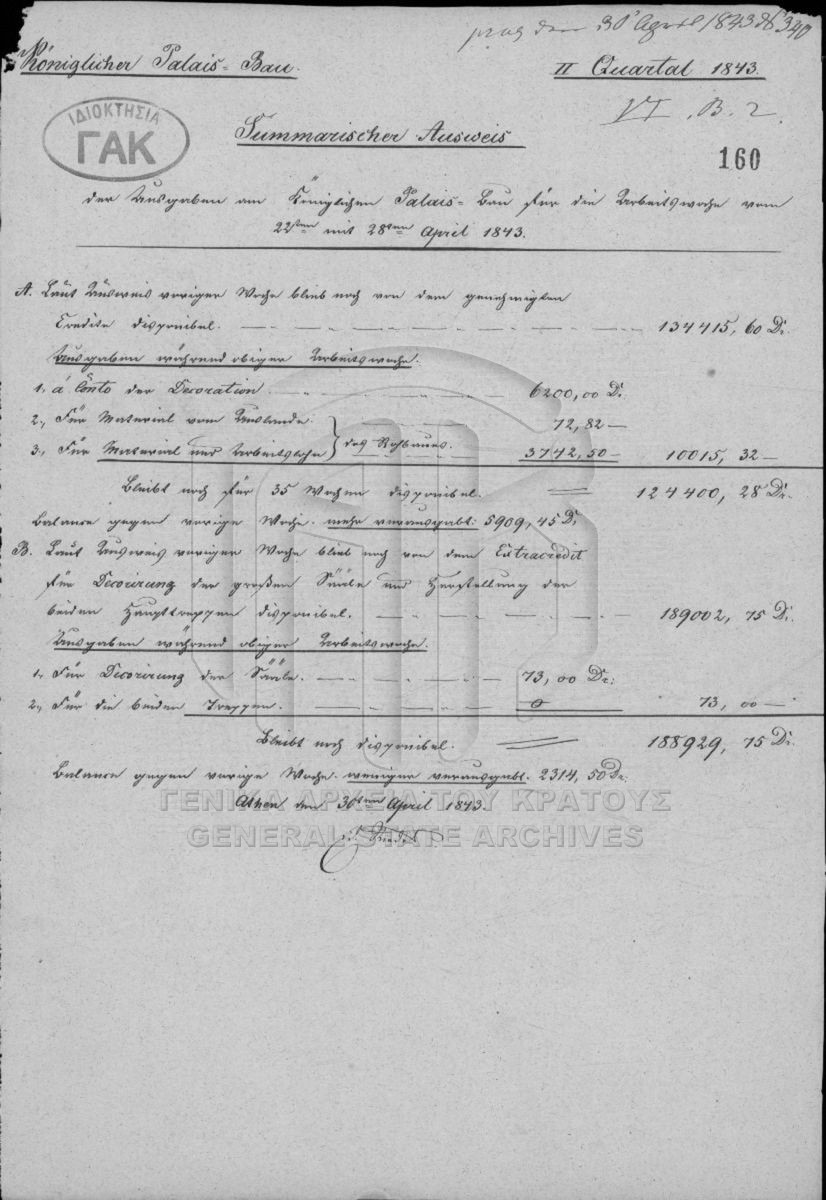 praes den 30 April 1843 № 340
Königlicher Palais-Bau.
II Quartal 1843.
VI. B. 2.
ΙΔΙΟΚΤΗΣΙΑ
ΓΑΚ
Summarischer Ausweis
160
der Ausgaben am Königlichen Palais-Bau für die Arbeitswoche vom
22sten mit 28sten April 1843.
A. Laut Ausweis voriger Woche blieb noch von dem genehmigten
Credite disponibel. 134415,60 Dr.
Ausgaben während obiger Arbeitswoche.
1., à Conto der Decoration 6200,00 Dr.
2., Für Material vom Auslande 72,82 —
3., Für Material und Arbeitslohn } des Rohbaues. 3742,50 — 10015,32 —
Bleibt noch für 35 Wochen disponibel. 124400,28 Dr.
Balance gegen vorige Woche. mehr verausgabt: 5909,45 Dr.
B. Laut Ausweis voriger Woche blieb noch von dem Extracredit
für Decorirung der großen Sääle und Herstellung der
beiden Haupttreppen disponibel. 189002,75 Dr.
Ausgaben während obiger Arbeitswoche.
1., Für Decorirung der Sääle. 73,00 Dr.
2., Für die beiden Treppen. 0 73,00 —
Bleibt noch disponibel. 188929,75 Dr.
Balance gegen vorige Woche. weniger verausgabt. 2314,50 Dr.
Athen den 30ten April 1843.
ΓΕΝΙΚΑ ΑΡΧΕΙΑ ΤΟΥ ΚΡΑΤΟΥΣ
GENERAL STATE ARCHIVES